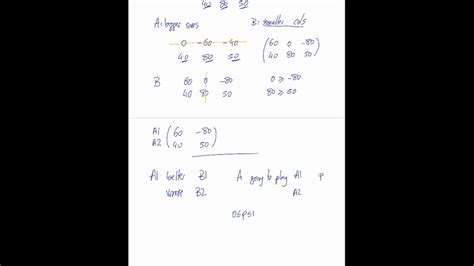 40 80 50
A: bigger rows B: smaller cols
0 -60 -40 (60 0 -80)
40 80 50 (40 80 50)
B 60 0 -80 0 ≥ -80
40 80 50 80 ≥ 50
A1 (60 -80)
A2 (40 50)
A1 better B1 A going to play A1 p
worse B2 A2
0≤p≤1